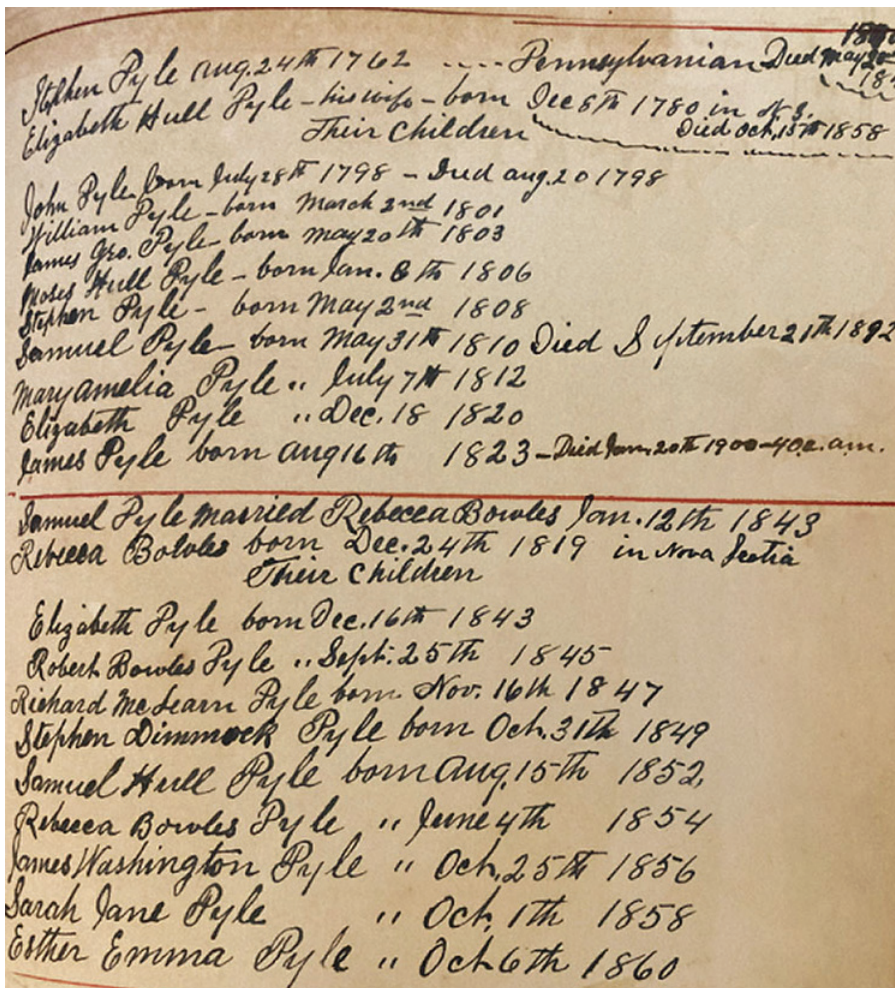 Stephen Pyle Aug. 24th 1762 .... Pennsylvanian Died May 20th
Elizabeth Hull Pyle - his wife - born Dec 8th 1780 in N.S.
Died Oct. 15th 1858
Their Children
John Pyle born July 28th 1798 - Died Aug. 20 1798
William Pyle - born March 2nd 1801
James Geo. Pyle - born May 20th 1803
Moses Hull Pyle - born Jan. 8th 1806
Stephen Pyle - born May 2nd 1808
Samuel Pyle - born May 31th 1810 Died September 21th 1892
Mary Amelia Pyle " July 7th 1812
Elizabeth Pyle " Dec. 18 1820
James Pyle born Aug 16th 1823 - Died Jan. 20th 1900 - a.m.
Samuel Pyle Married Rebecca Bowles Jan. 12th 1843
Rebecca Bowles born Dec. 24th 1819 in Nova Scotia
Their Children
Elizabeth Pyle born Dec. 16th 1843
Robert Bowles Pyle " Sept. 25th 1845
Richard McLearn Pyle born Nov. 16th 1847
Stephen Dimmock Pyle born Oct. 31th 1849
Samuel Hull Pyle born Aug. 15th 1852
Rebecca Bowles Pyle " June 4th 1854
James Washington Pyle " Oct. 25th 1856
Sarah Jane Pyle " Oct. 1th 1858
Esther Emma Pyle " Oct 6th 1860